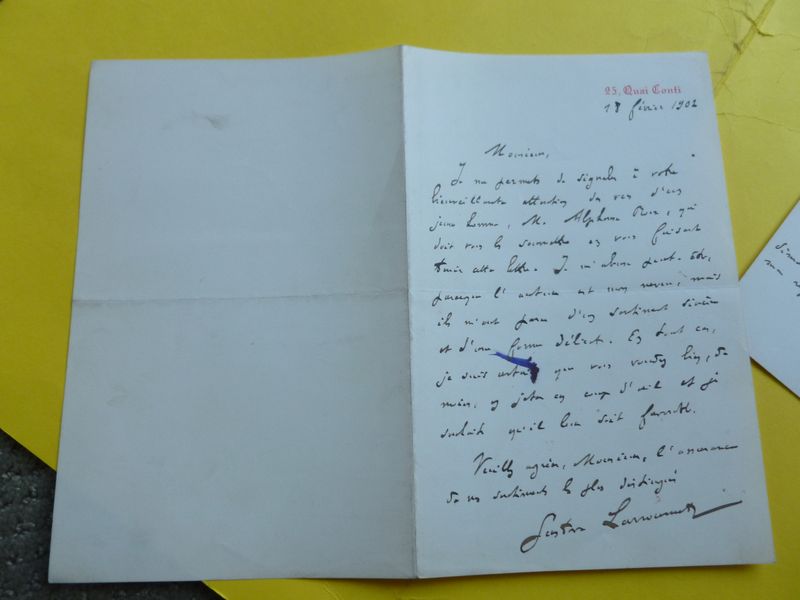 25, Quai Conti
18 février 1902
Monsieur,
Je me permets de signaler à votre
bienveillante attention des vers d'un
jeune homme, M. Alphonse, qui
doit vous les soumettre en vous faisant
tenir cette lettre. Je m'abuse peut-être,
parce que l'auteur est mon neveu, mais
ils m'ont paru d'un sentiment sincère
et d'une forme délicate. En tout cas,
je suis certain que vous voudrez bien, du
moins, y jeter un coup d'œil et je
souhaite qu'il leur soit favorable.
Veuillez agréer, Monsieur, l'assurance
de mes sentiments les plus distingués
Gustave Larroumet